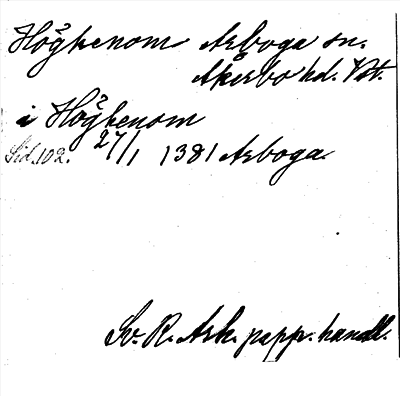 Högkenom Arboga sn.
Åkerbo hd. Vstm.
i Högkenom
Sid. 102. 27/1 1381 Arboga
Sv. R. Ark. papp. handl.